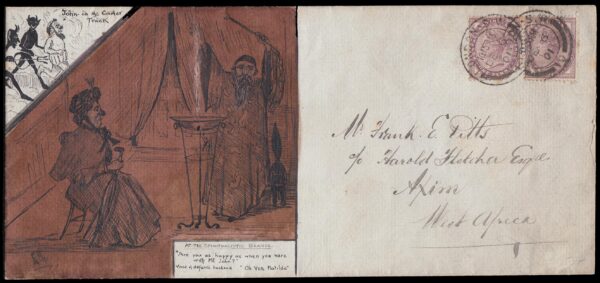 "John in the Cooler
Trunk"
AT THE SPIRITUALISTIC SEANCE
"Are you as happy as when you were
with me John?"
Voice of defunct husband "Oh Yes Matilda"
Mr Frank E. Pitts
c/o Harold Fletcher Esqre
Axim
West Africa